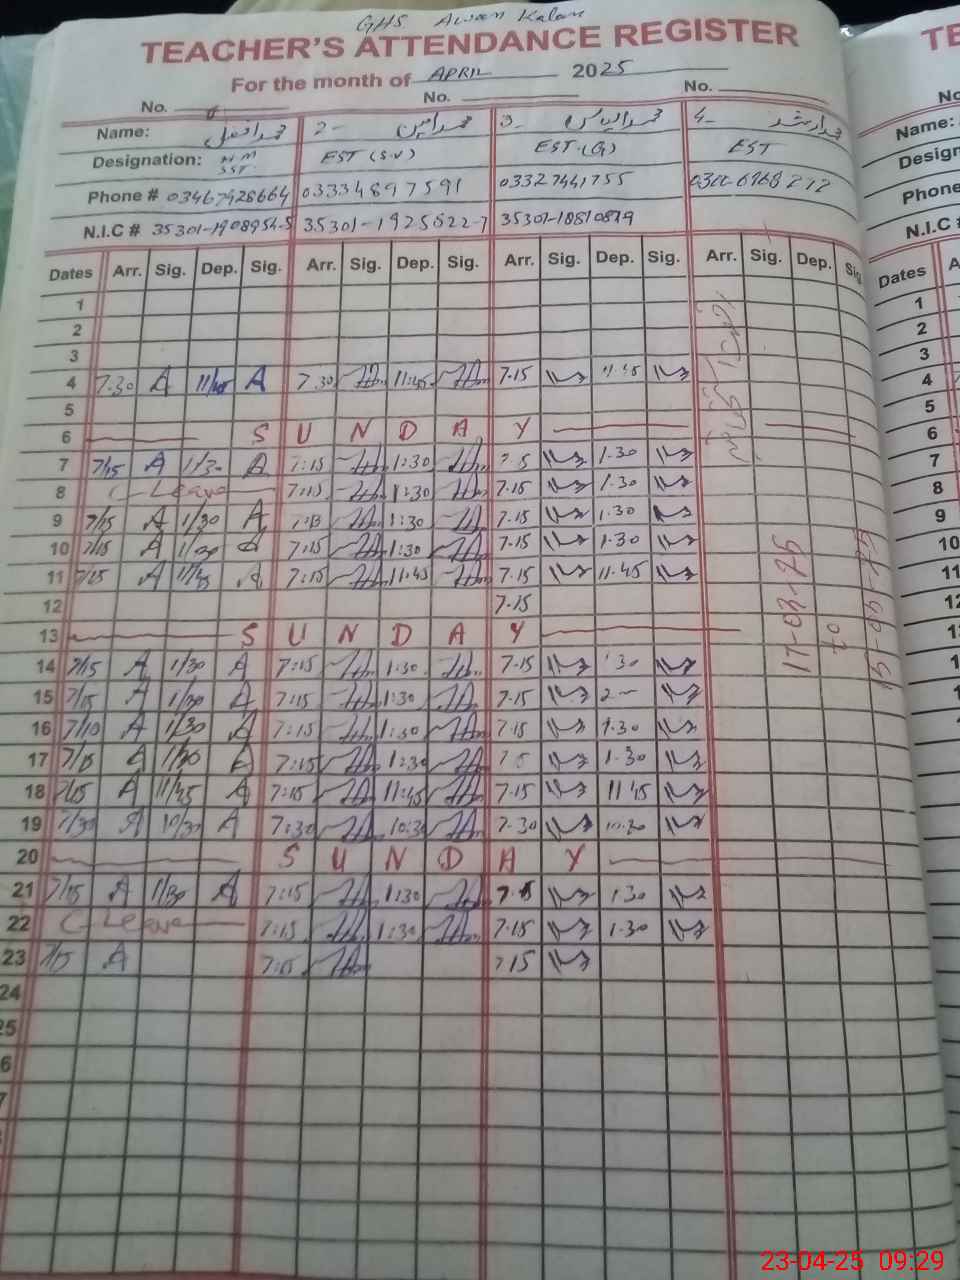 GHS Awan Kalan
TEACHER'S ATTENDANCE REGISTER
For the month of APRIL 2025
No. No. No.
Name: محمد افضل 2- محمد امین 3- محمد الیاس 4- محمد ارشد
Designation: H.M SST. EST (S.V) EST.(G) EST
Phone # 03467428664 03334897591 03327441755
N.I.C # 35301-1908954-5 35301-1925622-7 35301-18810879
Dates Arr. Sig. Dep. Sig. Arr. Sig. Dep. Sig. Arr. Sig. Dep. Sig. Arr. Sig. Dep. Sig.
1
2
3
4 7.30 A 11/45 A 7.30 11:45 7.15 11.45
5
6 S U N D A Y
7 7/15 A 1/30 A 7:15 1:30 7.15 1.30
8 C-Leave 7:15 1:30 7.15 1.30
9 7/15 A 1/30 A 7:15 1:30 7.15 1.30
10 7/15 A 1/30 A 7:15 1:30 7.15 1.30
11 7/15 A 11/45 A 7:15 11.45 7.15 11.45
12 7.15
13 S U N D A Y
14 7/15 A 1/30 A 7:15 1:30 7.15 1.30
15 7/15 A 1/30 A 7:15 1:30 7.15 2
16 7/10 A 1/30 A 7:15 1:30 7.15 1.30
17 7/15 A 1/30 A 7:15 1:30 7.15 1.30
18 7/15 A 11/45 A 7:15 11:45 7.15 11.45
19 7/30 A 10/30 A 7:30 10:30 7.30 10.30
20 S U N D A Y
21 7/15 A 1/30 A 7:15 1:30 7.15 1.30
22 C-Leave 7:15 1:30 7.15 1.30
23 7/15 A 7:15 7.15
24
25
17-03-25
to
15-05-25
23-04-25 09:29